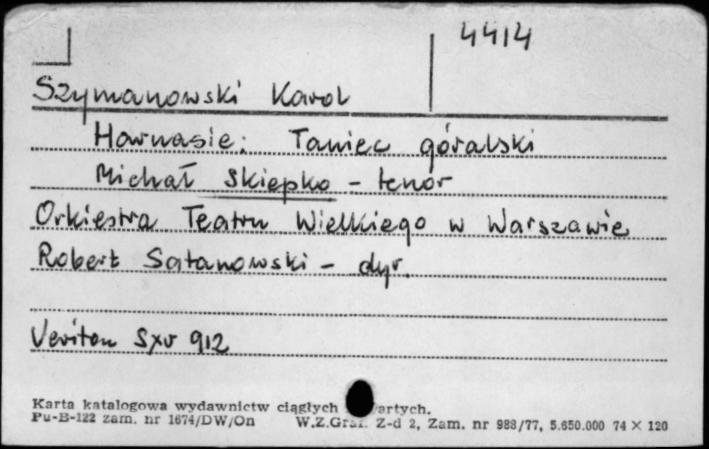 4414
Szymanowski Karol
Harnasie: Taniec góralski
Michał Skiepko - tenor
Orkiestra Teatru Wielkiego w Warszawie
Robert Satanowski - dyr.
Veriton Sxv 912
Karta katalogowa wydawnictw ciągłych
Pu-B-122 zam. nr 1674/DW/On W.Z.Graf. Z-d 2, Zam. nr 988/77, 5.650.000 74 × 120